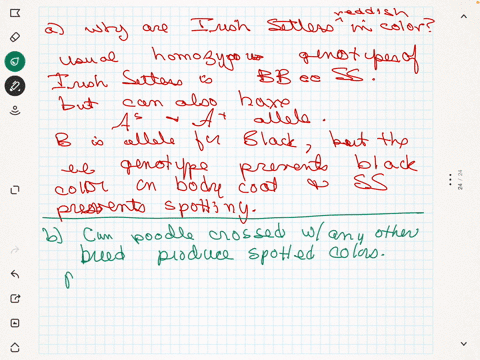 reddish
a) why are Irish Setters in color?
usual homozygous genotypes of
Irish Setters is BB ee SS.
but can also have
Aˢ Aʸ allele.
B is allele for Black, but the
ee genotype prevents black
color on body coat & SS
prevents spotting.
b) Can poodle crossed w/ any other
breed produce spotted colors.